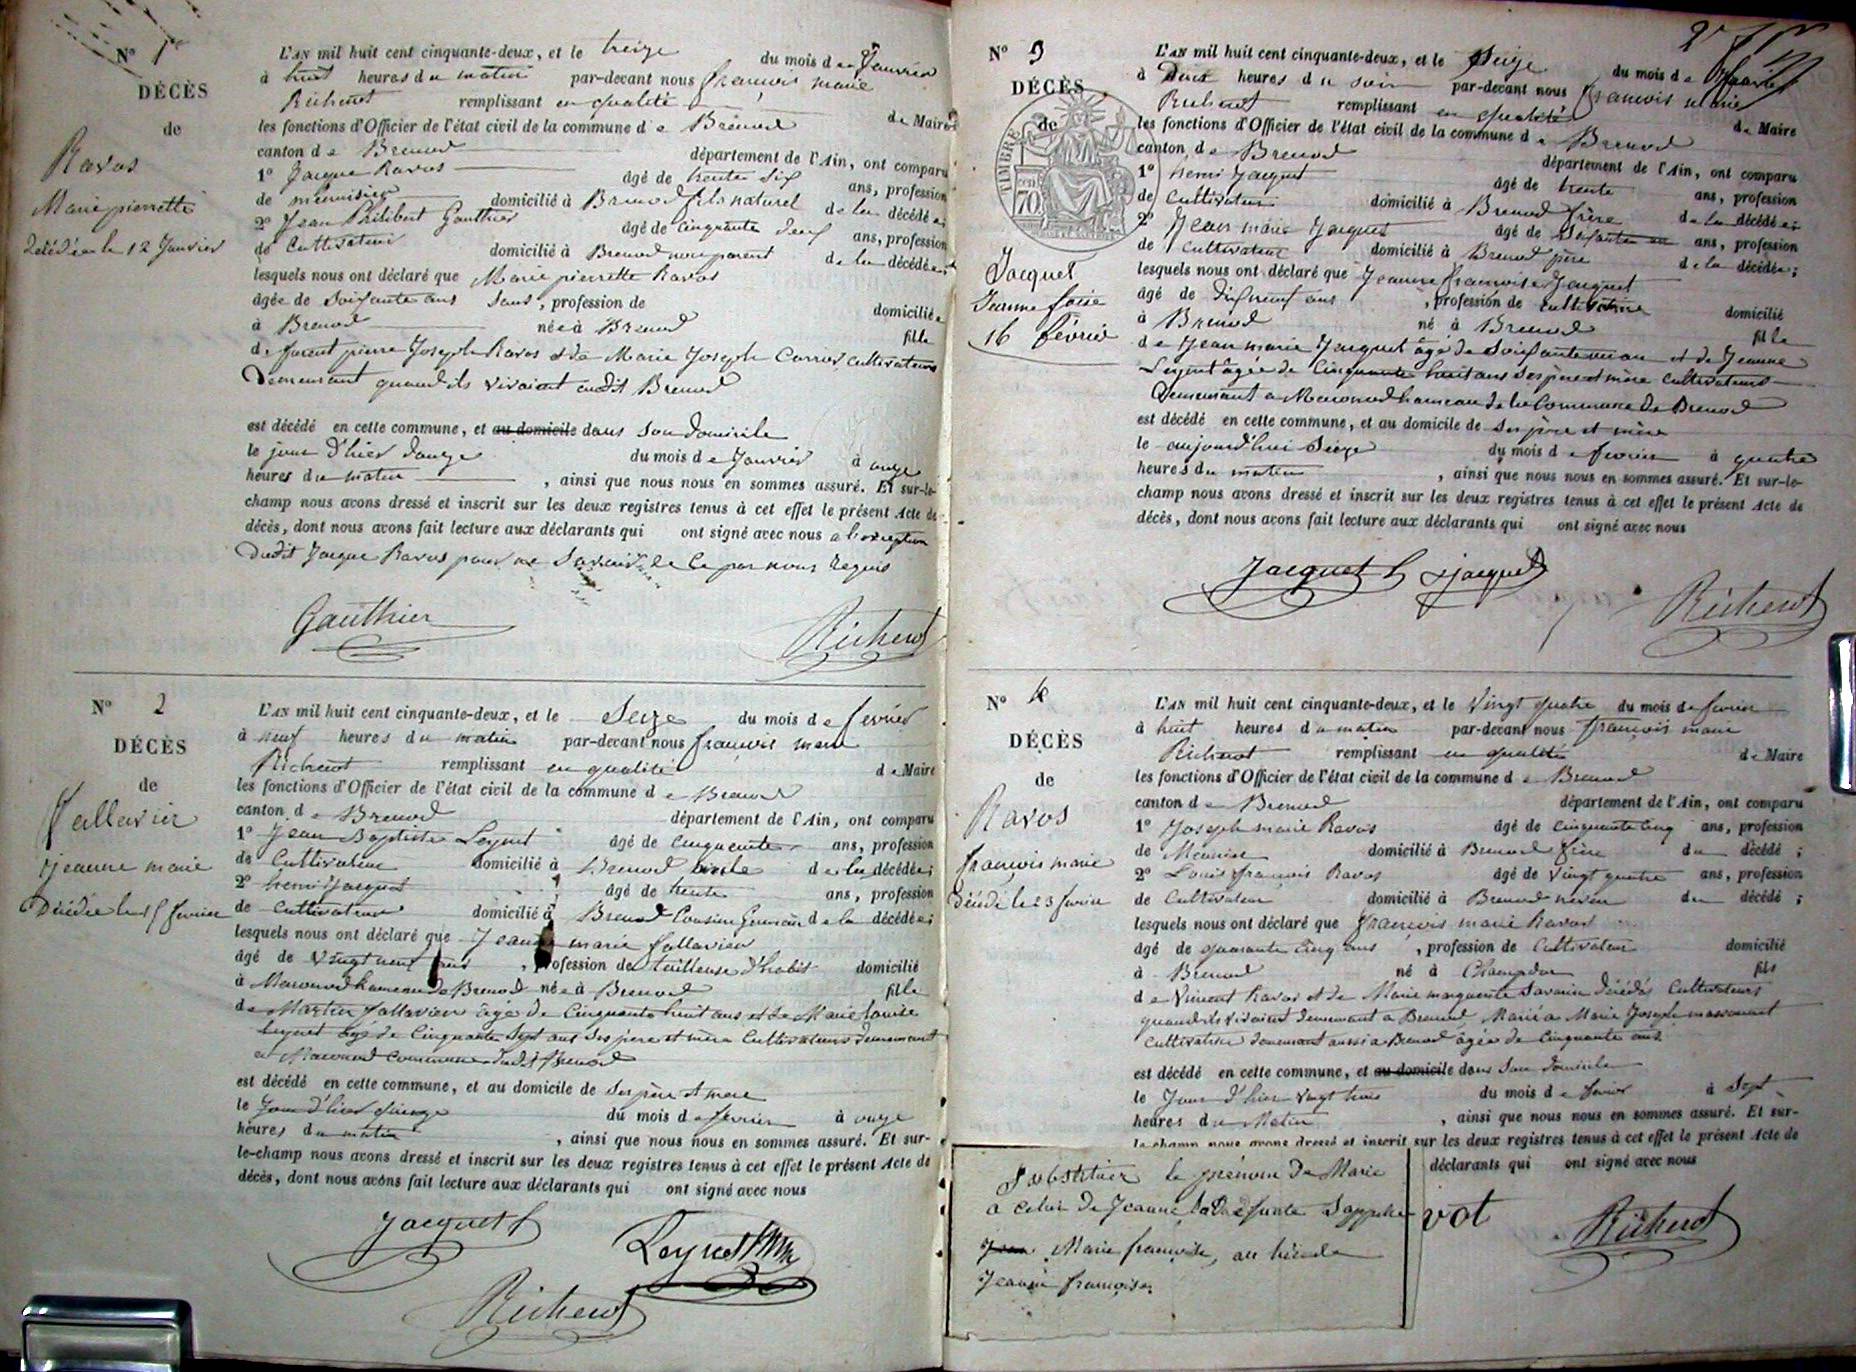 N° 1er
DÉCÈS
de
Ravos
Marie pierrette
décédée le 12 Janvier
L'AN mil huit cent cinquante-deux, et le treize du mois de Janvier
à huit heures du matin par-devant nous françois marie
Richerot remplissant en qualité de Maire
les fonctions d'Officier de l'état civil de la commune de Brénod
canton de Brenod département de l'Ain, ont comparu
1° Jacque Ravos âgé de trente six ans, profession
de menuisier domicilié à Brenod fils naturel de la décédée;
2° Jean Philibert Gauthier âgé de cinquante deux ans, profession
de Cultivateur domicilié à Brenod non parent de la décédée;
lesquels nous ont déclaré que Marie pierrette Ravos
âgée de Soixante ans Sans, profession de domiciliée
à Brenod née à Brenod fille
de feu pierre Joseph Ravos et de Marie Joseph Carrier cultivateurs
Demeurant quand ils vivaient audit Brenod
est décédé en cette commune, et au domicile dans Son domicile
le jour d'hier douze du mois de Janvier à onze
heures du matin, ainsi que nous nous en sommes assuré. Et sur-le-
champ nous avons dressé et inscrit sur les deux registres tenus à cet effet le présent Acte de
décès, dont nous avons fait lecture aux déclarants qui ont signé avec nous a l'exception
dudit Jacque Ravos pour ne Savoir de ce par nous requis
Gauthier Richerot
N° 2
DÉCÈS
de
fallavier
Jeanne marie
Décédée le 15 fevrier
L'AN mil huit cent cinquante-deux, et le Seize du mois de fevrier
à neuf heures du matin par-devant nous françois marie
Richerot remplissant en qualité de Maire
les fonctions d'Officier de l'état civil de la commune de Brenod
canton de Brenod département de l'Ain, ont comparu
1° Jean Baptiste Leynet âgé de cinquante ans, profession
de Cultivateur domicilié à Brenod oncle de la décédée;
2° henri Jacquet âgé de trente ans, profession
de cultivateur domicilié à Brenod Cousin Germain de la décédée;
lesquels nous ont déclaré que Jeanne marie fallavier
âgé de vingt neuf ans, profession de tailleuse d'habit domicilié
à Maconod hameau de Brenod née à Brenod fille
de Martin fallavier âgé de Cinquante huit ans et de Marie louise
Leynet âgé de Cinquante Sept ans Ses père et mère Cultivateurs demeurant
a Maconod commune dudit Brenod
est décédé en cette commune, et au domicile de Ses père et mere
le Jour d'hier quinze du mois de fevrier à onze
heures du matin, ainsi que nous nous en sommes assuré. Et sur-
le-champ nous avons dressé et inscrit sur les deux registres tenus à cet effet le présent Acte de
décès, dont nous avons fait lecture aux déclarants qui ont signé avec nous
Jacquet h Leynet
Richerot
N° 3
DÉCÈS
de
TIMBRE
70
Jacquet
Jeanne foise
16 février
L'AN mil huit cent cinquante-deux, et le Seize du mois de fevrier
à Deux heures du soir par-devant nous françois marie
Richerot remplissant en qualité de Maire
les fonctions d'Officier de l'état civil de la commune de Brenod
canton de Brenod département de l'Ain, ont comparu
1° henri Jacquet âgé de trente ans, profession
de Cultivateur domicilié à Brenod frère de la décédée;
2° Jean marie Jacquet âgé de Soixante un ans, profession
de Cultivateur domicilié à Brenod père de la décédée;
lesquels nous ont déclaré que Jeanne françoise Jacquet
âgé de dix neuf ans, profession de cultivatrice domicilié
à Brenod né à Brenod fille
de Jean marie Jacquet âgé de Soixante un an et de Jeanne
Leynet âgée de Cinquante huit ans Ses père et mère cultivateurs
Demeurant a Maconod hameau de la Commune de Brenod
est décédé en cette commune, et au domicile de Ses père et mère
le aujourd'hui Seize du mois de fevrier à quatre
heures du matin, ainsi que nous nous en sommes assuré. Et sur-le-
champ nous avons dressé et inscrit sur les deux registres tenus à cet effet le présent Acte de
décès, dont nous avons fait lecture aux déclarants qui ont signé avec nous
Jacquet h Jacquet Richerot
N° 4
DÉCÈS
de
Ravos
françois marie
décédé le 23 fevrier
L'AN mil huit cent cinquante-deux, et le Vingt quatre du mois de fevrier
à huit heures du matin par-devant nous françois marie
Richerot remplissant en qualité de Maire
les fonctions d'Officier de l'état civil de la commune de Brenod
canton de Brenod département de l'Ain, ont comparu
1° Joseph marie Ravos âgé de cinquante cinq ans, profession
de Menuisier domicilié à Brenod frère du décédé;
2° Louis françois Ravos âgé de vingt quatre ans, profession
de Cultivateur domicilié à Brenod neveu du décédé;
lesquels nous ont déclaré que françois marie Ravos
âgé de quarante cinq ans, profession de Cultivateur domicilié
à Brenod né à Champdor fils
de Vincent Ravos et de Marie marguerite Savarin décédés Cultivateurs
quand ils vivaient demeurant a Brenod, Marié a Marie Joseph massonnet
Cultivatrice demeurant aussi a Brenod âgée de Cinquante ans
est décédé en cette commune, et au domicile dans Son domicile
le Jour d'hier vingt trois du mois de fevrier à Sept
heures du Matin, ainsi que nous nous en sommes assuré. Et sur-
le-champ nous avons dressé et inscrit sur les deux registres tenus à cet effet le présent Acte de
déclarants qui ont signé avec nous
vot Richerot
Substituer le prénom de Marie
a celui de Jeanne la Défunte S'appelle
Jean Marie françoise, au lieu de
Jeanne françoise